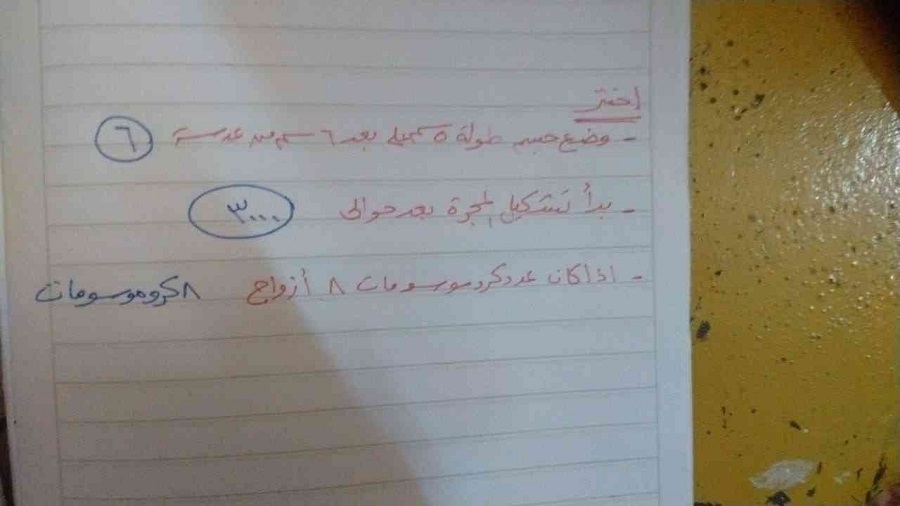 اختر
- وضع جسم طوله ٥ سم على بعد ٦ سم من عدسة ٦
- بدأ تشكيل المجرة بعد حوالى ٣٠٠٠
- اذا كان عدد كروموسومات ٨ أزواج ٨ كروموسومات